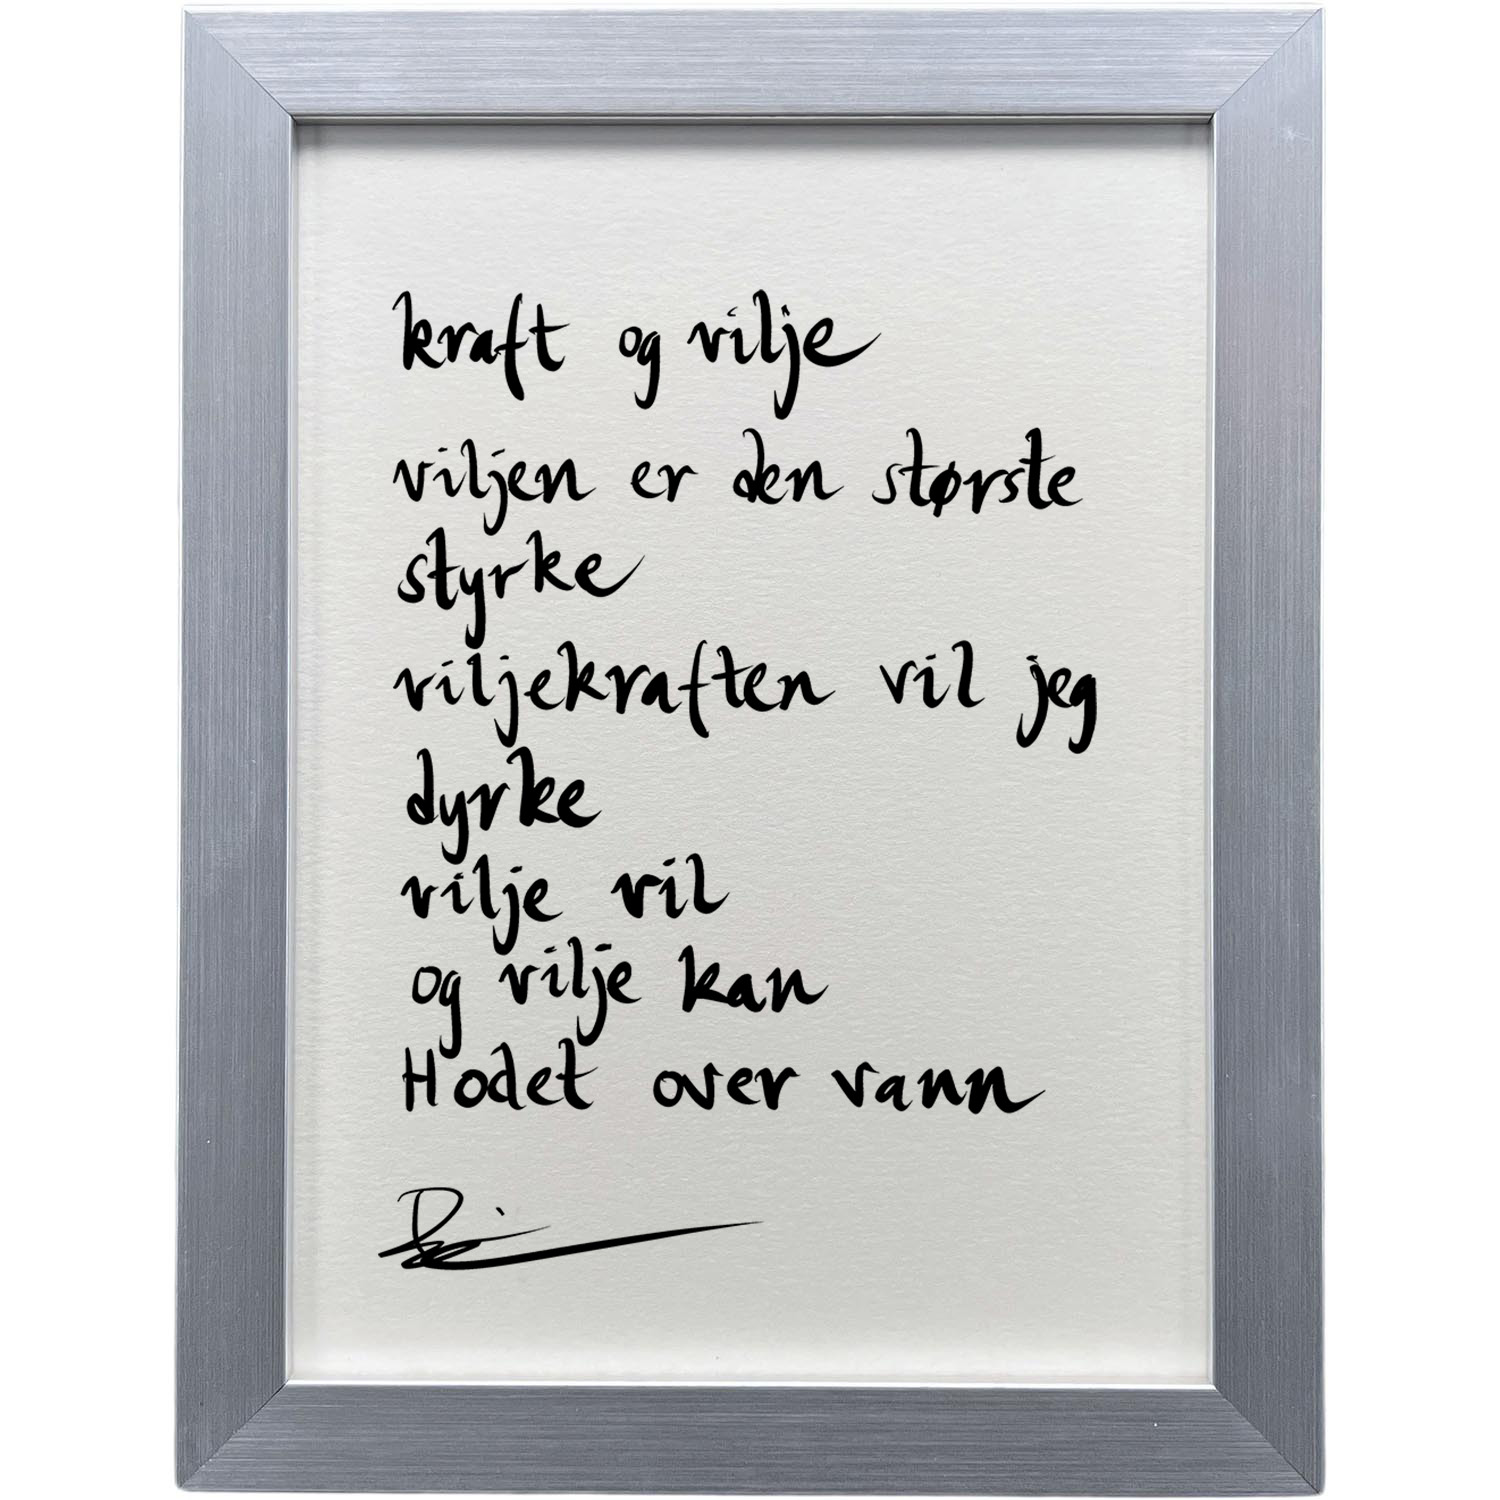 kraft og vilje
viljen er den største
styrke
viljekraften vil jeg
dyrke
vilje vil
og vilje kan
Hodet over vann